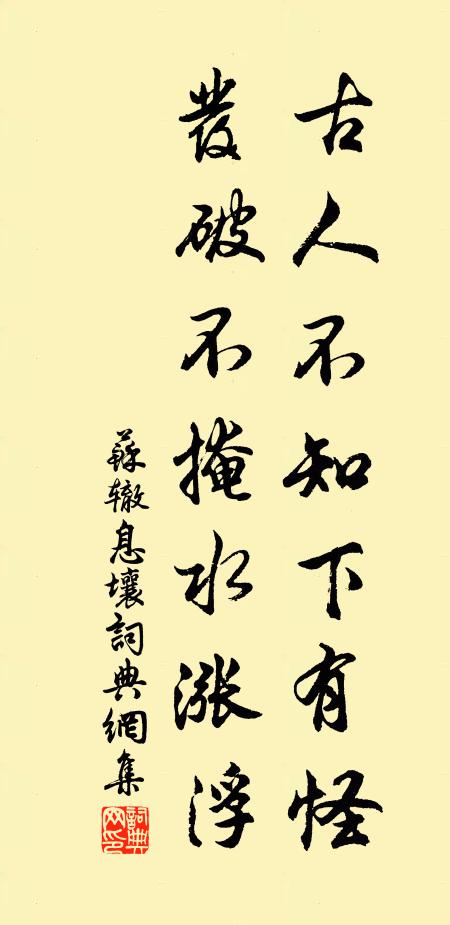 古人不知下有怪
發破不掩水漲浮
蘇辙息壤詞典網集
詞典网印